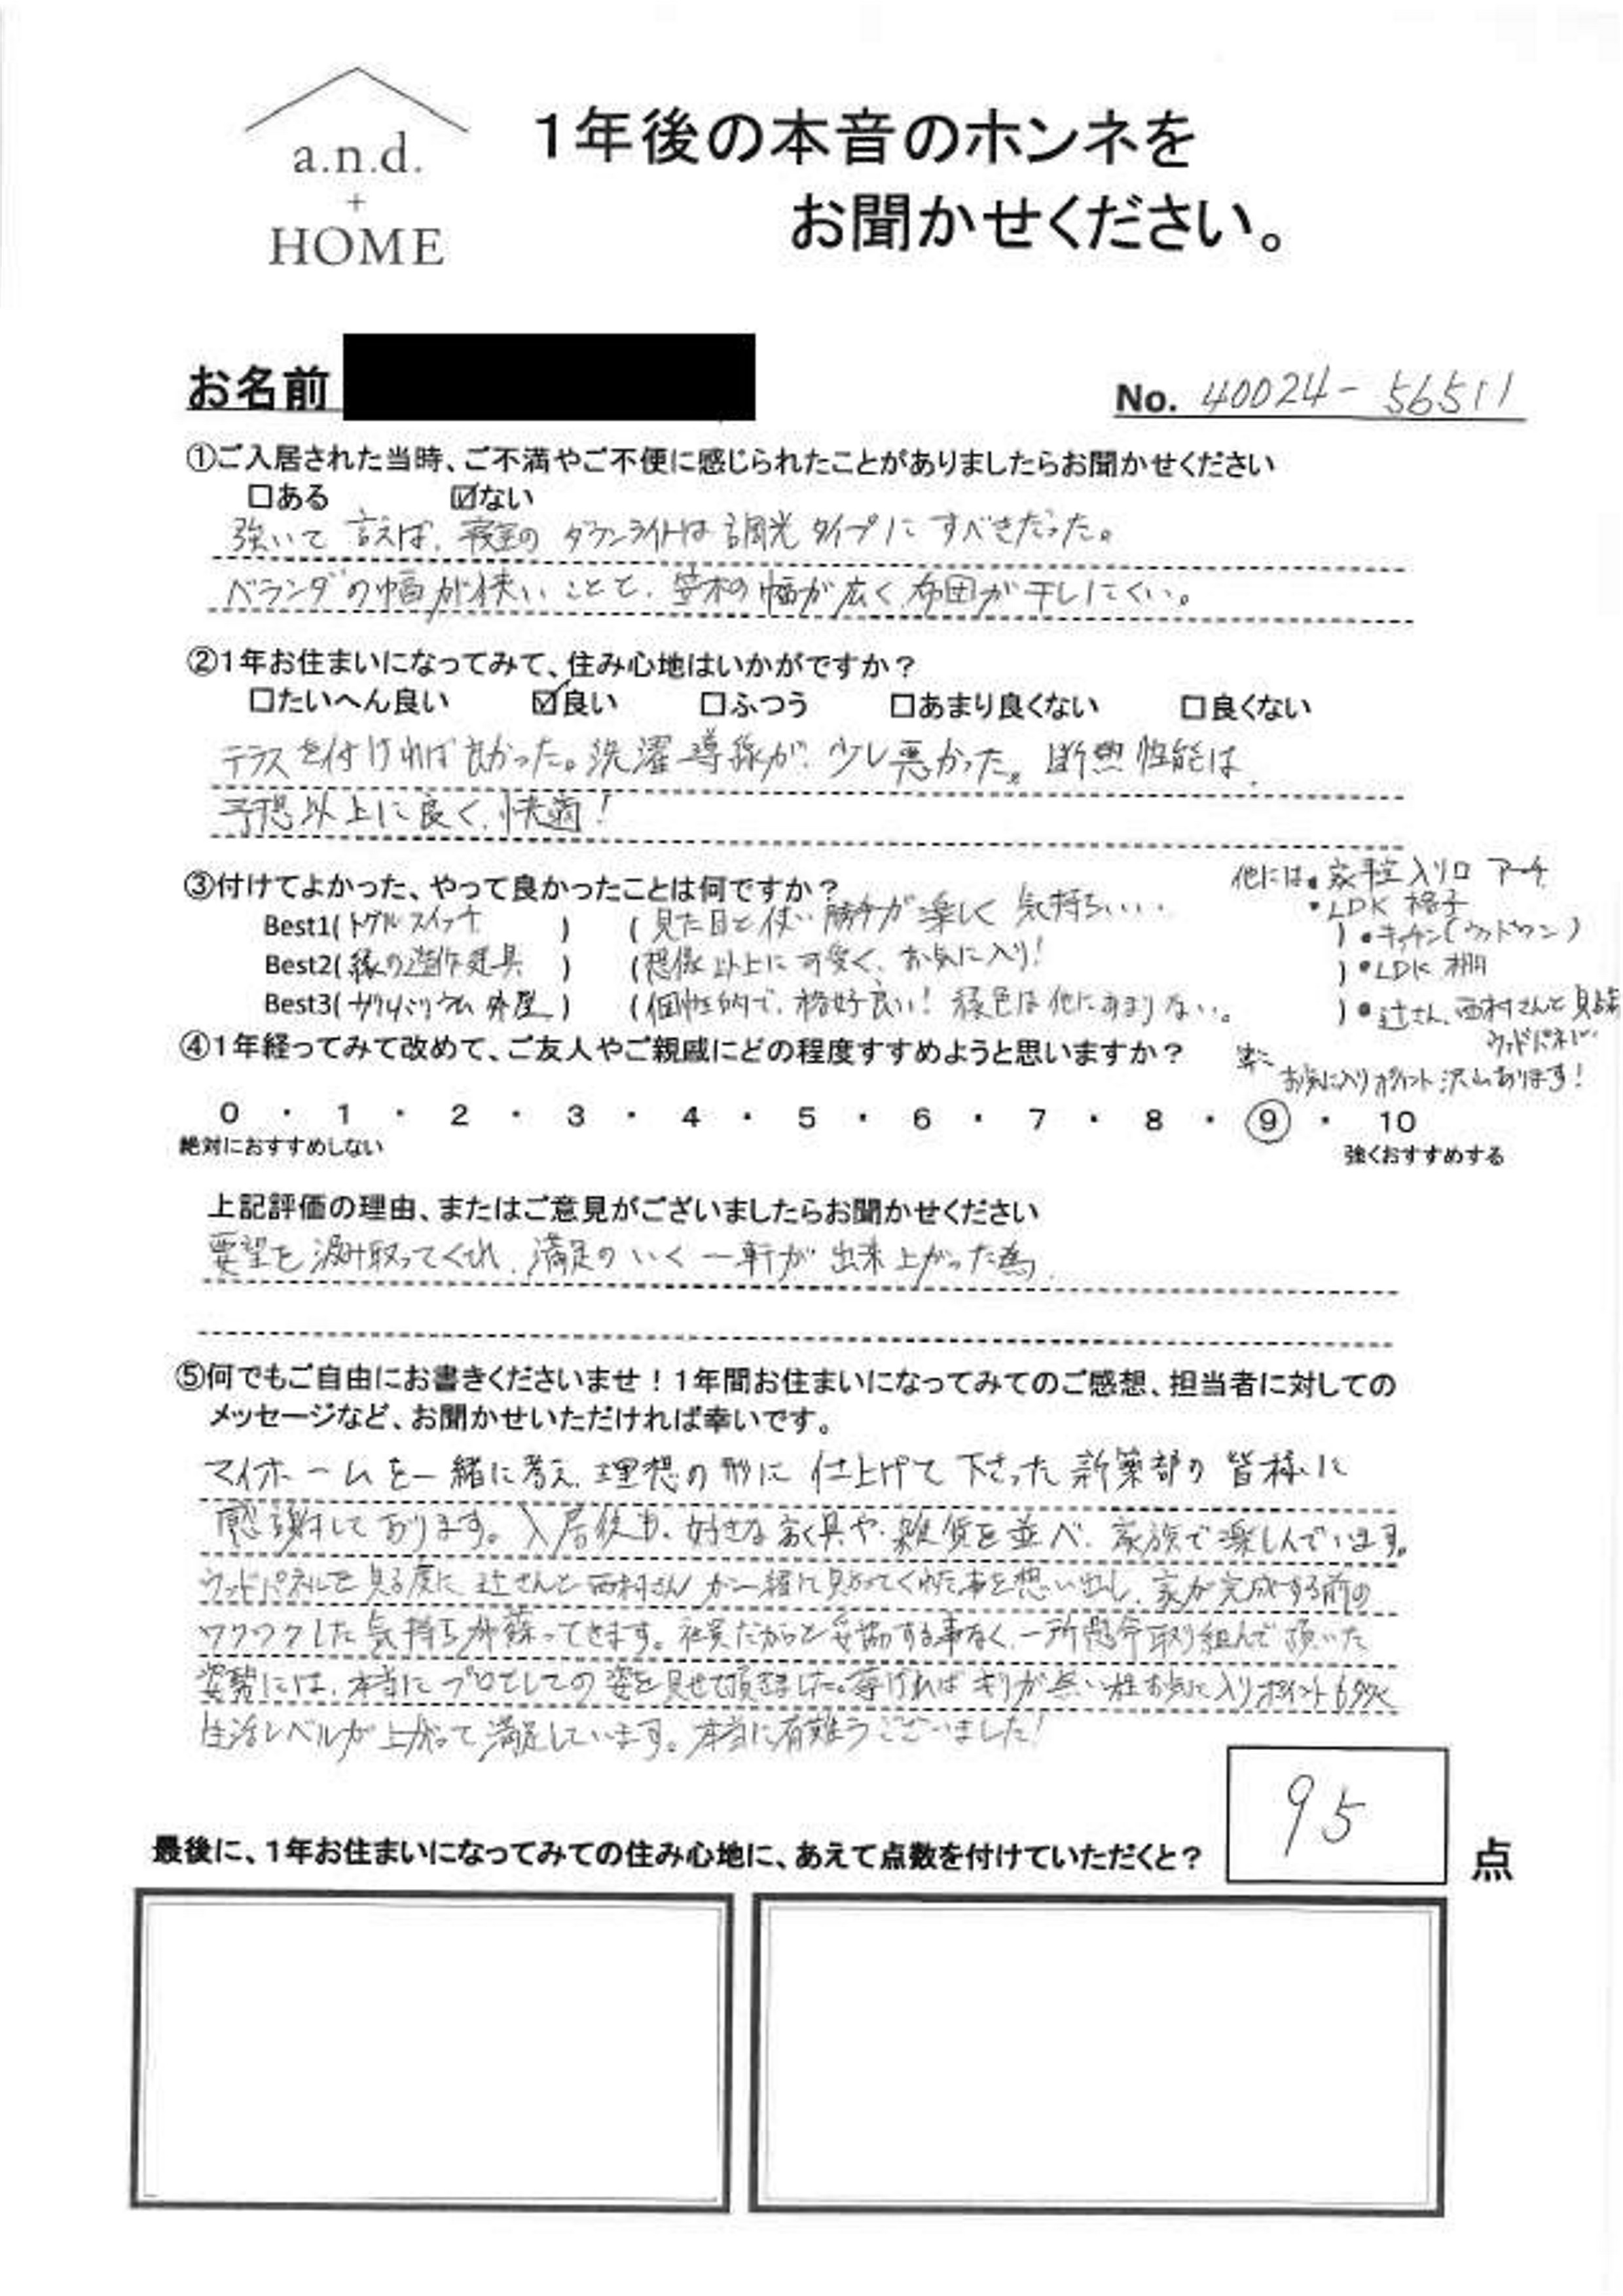 a.n.d.
+
HOME
1年後の本音のホンネを
お聞かせください。
お名前
No. 40024-56511
①ご入居された当時、ご不満やご不便に感じられたことがありましたらお聞かせください
□ある ☑ない
強いて言えば、寝室のダウンライトは調光タイプにすべきだった。
ベランダの幅が狭いことと、笠木の幅が広く布団が干しにくい。
②1年お住まいになってみて、住み心地はいかがですか?
□たいへん良い ☑良い □ふつう □あまり良くない □良くない
テラスを付ければ良かった。洗濯導線が、少し悪かった。断熱性能は、
予想以上に良く、快適!
③付けてよかった、やって良かったことは何ですか?
Best1(トグルスイッチ) (見た目と使い勝手が楽しく気持ちいい。)
Best2(緑の造作建具) (想像以上に可愛く、お気に入り!)
Best3(ガルバリウム外壁) (個性的で、格好良い! 緑色は他にあまりない。)
他には・家事室入り口 アーチ
・LDK 格子
・キッチン(ウッドワン)
・LDK 棚
・辻さん、西村さんと見た
ウッドパネル
お気に入りポイント沢山あります!
④1年経ってみて改めて、ご友人やご親戚にどの程度すすめようと思いますか?
0 ・ 1 ・ 2 ・ 3 ・ 4 ・ 5 ・ 6 ・ 7 ・ 8 ・ 9 ・ 10
絶対におすすめしない 強くおすすめする
上記評価の理由、またはご意見がございましたらお聞かせください
要望を汲み取ってくれ、満足のいく一軒が出来上がった為。
⑤何でもご自由にお書きくださいませ!1年間お住まいになってみてのご感想、担当者に対しての
メッセージなど、お聞かせいただければ幸いです。
マイホームを一緒に考え、理想の形に仕上げて下さった新築部の皆様に
感謝しております。入居後も、好きな家具や雑貨を並べ、家族で楽しんでいます。
ウッドパネルを見る度に辻さんと西村さんが一緒に見てくれた事を想い出し、家が完成する前の
ワクワクした気持ちが蘇ってきます。社員だからと妥協する事なく、一所懸命取り組んで頂いた
姿勢には、本当にプロとしての姿を見せて頂きました。挙げればキリが無い程お気に入りポイント
生活レベルが上がって満足しています。本当に有難うございました!
最後に、1年お住まいになってみての住み心地に、あえて点数を付けていただくと?
95
点